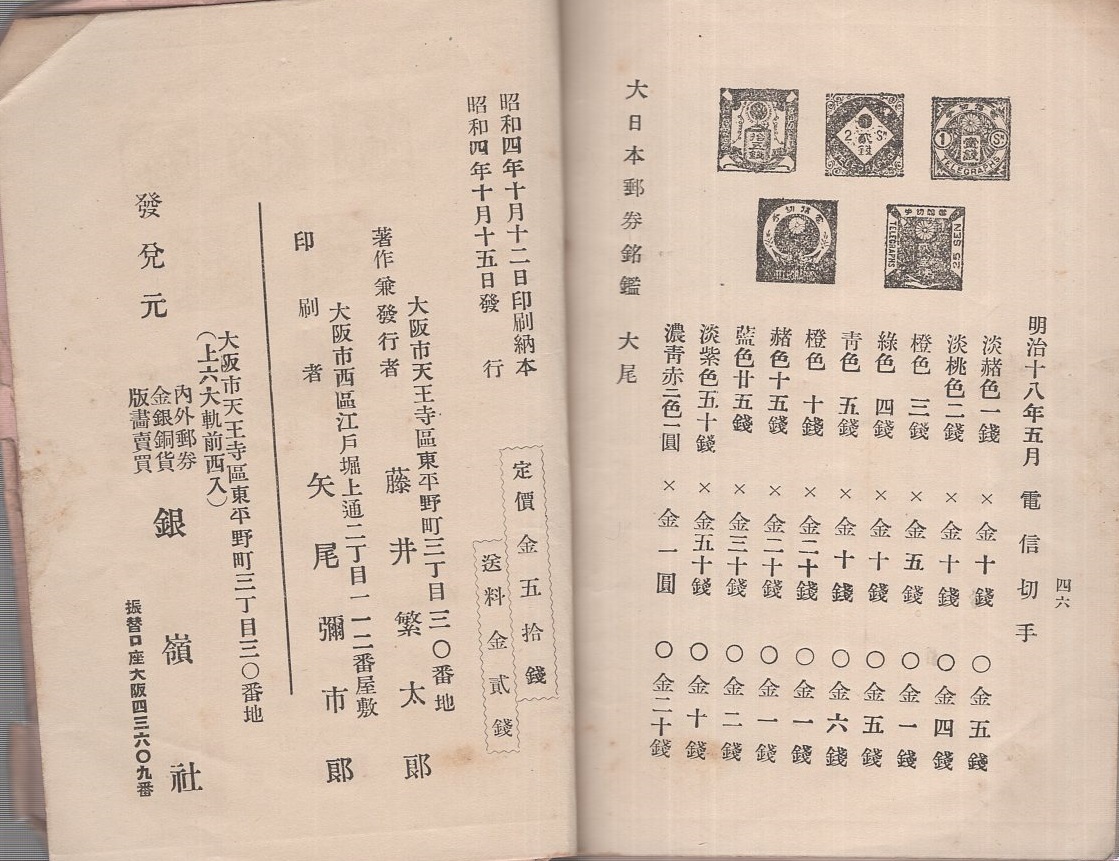 四六
明治十八年五月 電信切手
淡赭色一錢 × 金十錢 ○ 金五錢
淡桃色二錢 × 金十錢 ○ 金四錢
橙色 三錢 × 金五錢 ○ 金一錢
綠色 四錢 × 金十錢 ○ 金五錢
靑色 五錢 × 金十錢 ○ 金六錢
橙色 十錢 × 金二十錢 ○ 金一錢
赭色十五錢 × 金二十錢 ○ 金一錢
藍色廿五錢 × 金三十錢 ○ 金二錢
淡紫色五十錢 × 金五十錢 ○ 金十錢
濃靑赤二色一圓 × 金一圓 ○ 金二十錢
大日本郵券銘鑑 大尾
1 Sn
TELEGRAPHS
2 Sn
貳錢
拾五錢
TELEGRAPHS
25 SEN
昭和四年十月十二日印刷納本
昭和四年十月十五日發行
定價金五拾錢
送料金貳錢
大阪市天王寺區東平野町三丁目三〇番地
著作兼發行者 藤井繁太郎
大阪市西區江戶堀上通二丁目一一二番屋敷
印刷者 矢尾彌市郎
大阪市天王寺區東平野町三丁目三〇番地
(上六大軌前西入)
發兌元
內外郵券
金銀銅貨
版畵賣買
銀嶺社
振替口座大阪四三六〇九番